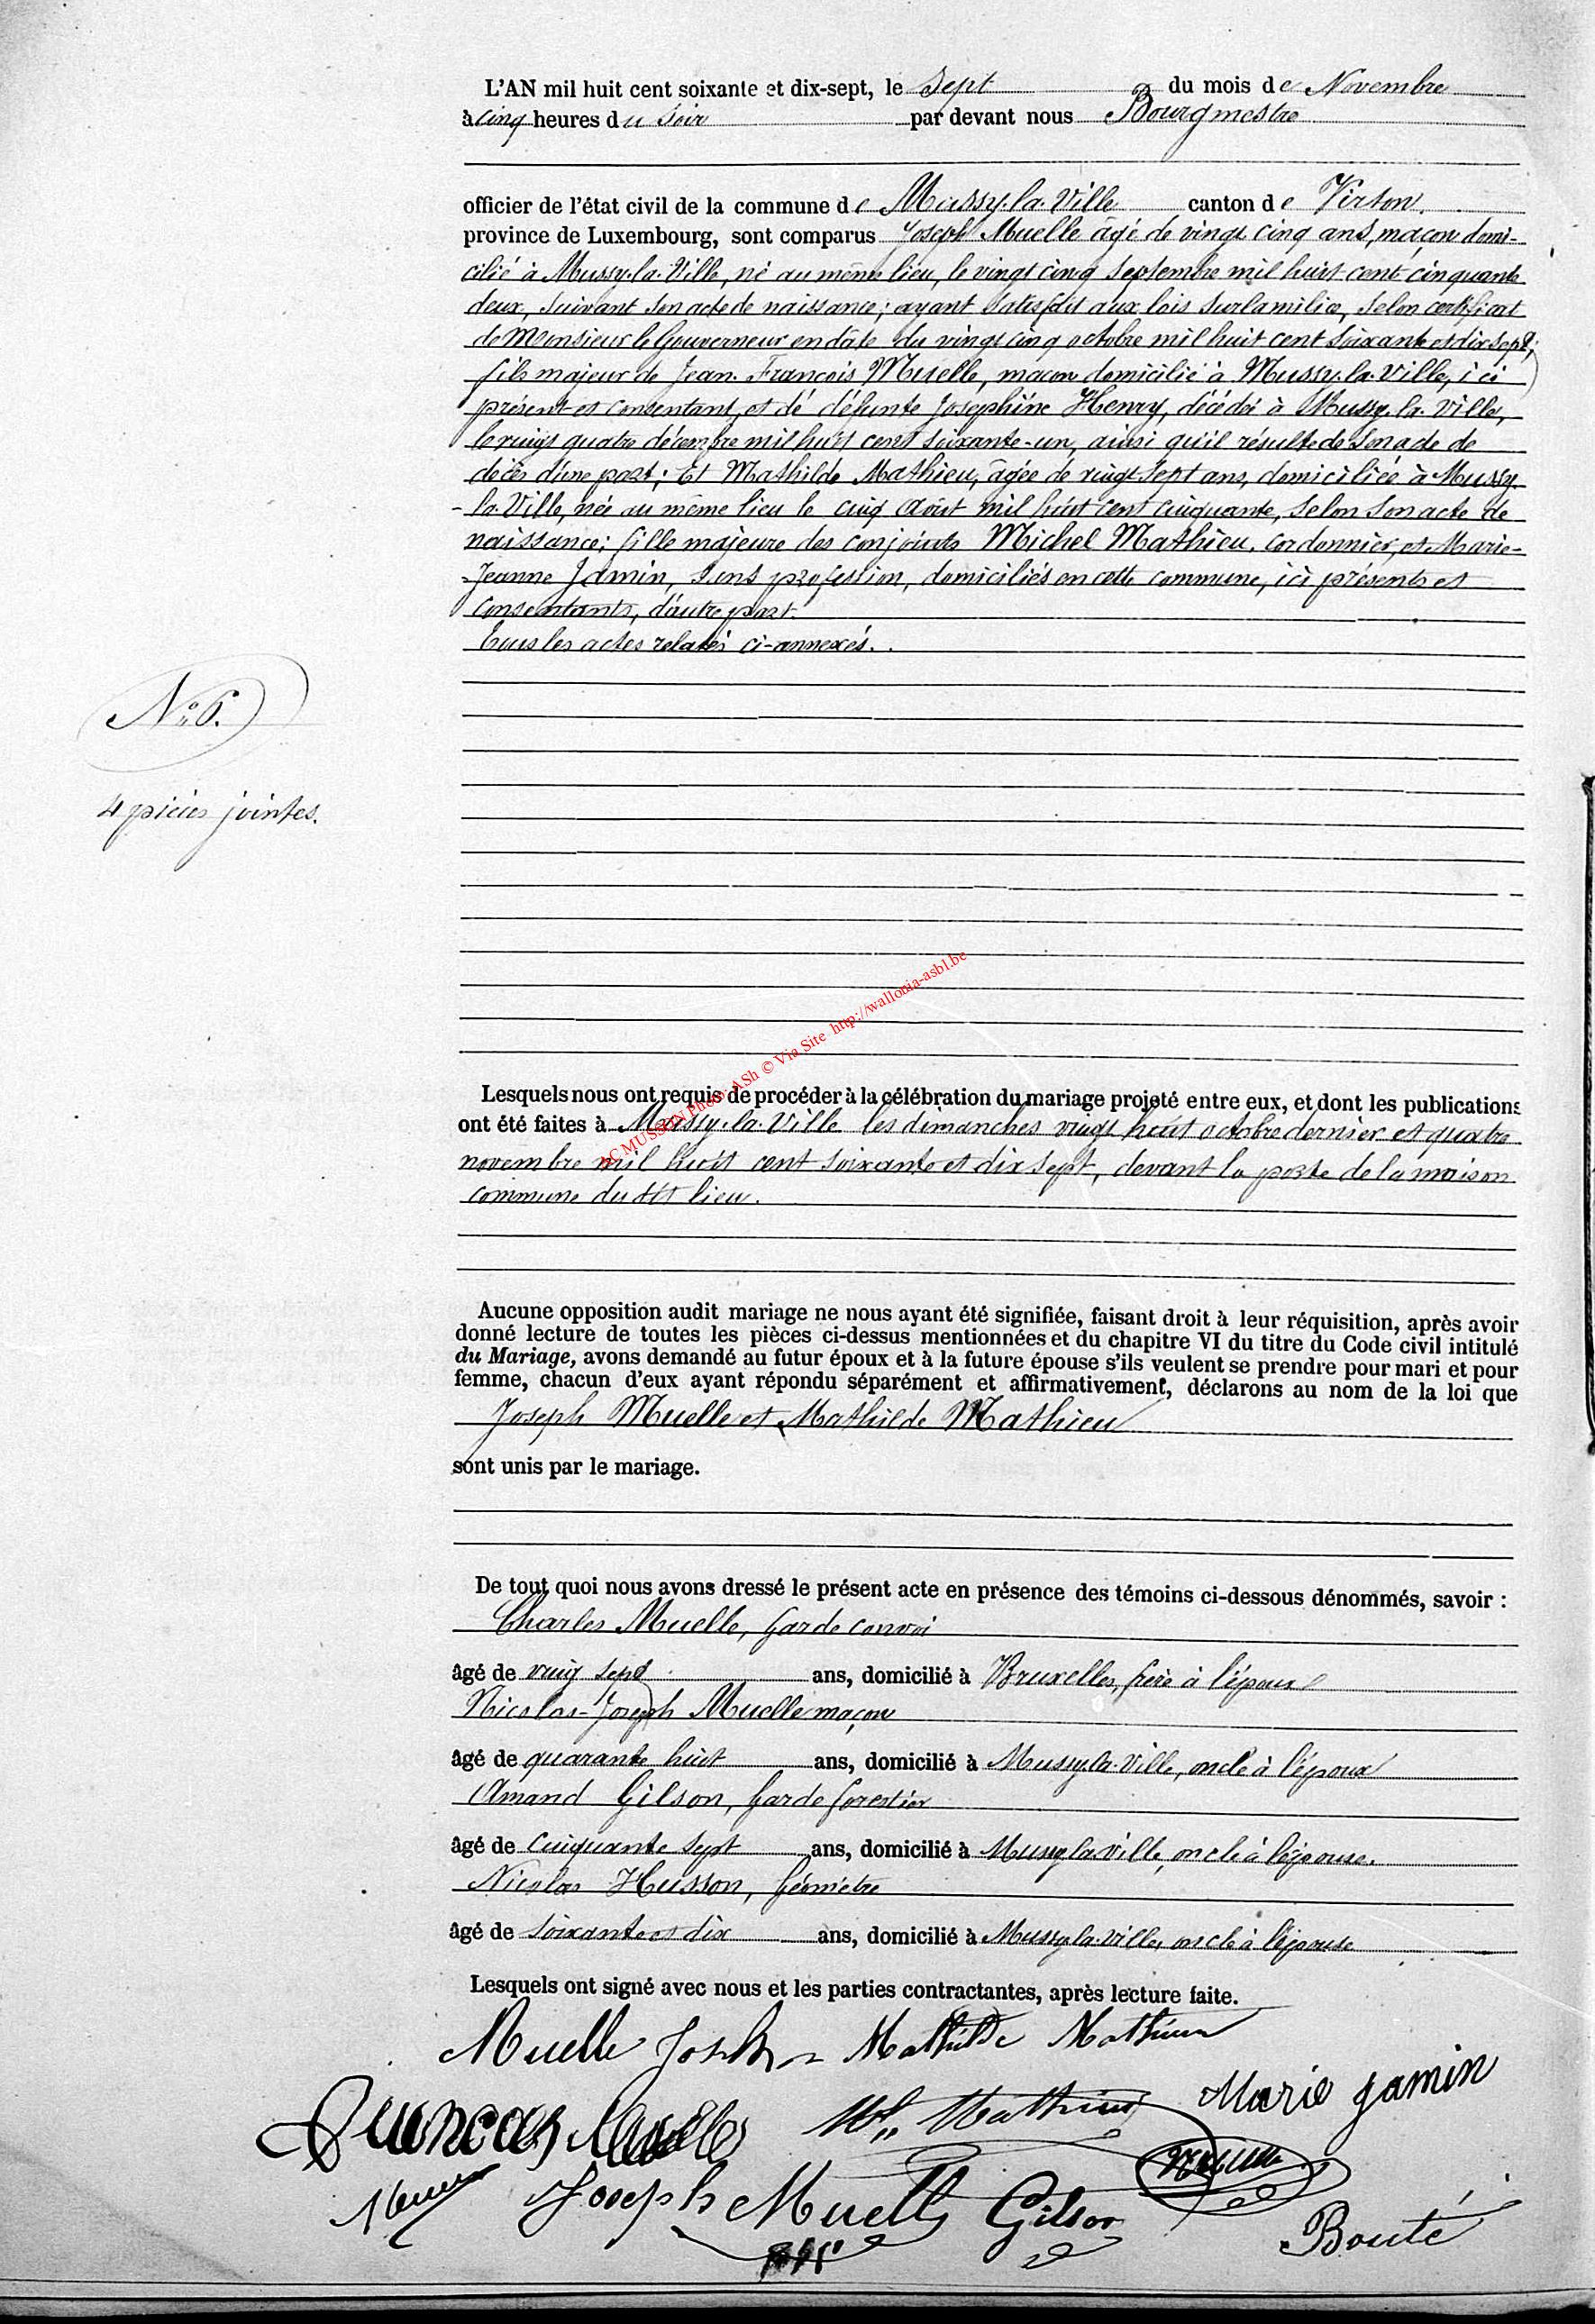 L'AN mil huit cent soixante et dix-sept, le Sept du mois de Novembre
à cinq heures du soir par devant nous Bourgmestre
officier de l'état civil de la commune de Mussy-la-Ville canton de Virton.
province de Luxembourg, sont comparus Joseph Muelle âgé de vingt cinq ans, maçon domi-
cilié à Mussy-la-Ville, né au même lieu, le vingt cinq Septembre mil huit cent cinquante
deux, suivant son acte de naissance; ayant satisfait aux lois sur la milice, selon certificat
de Monsieur le Gouverneur en date du vingt cinq octobre mil huit cent soixante et dix sept,
fils majeur de Jean-François Muelle, maçon domicilié à Mussy-la-Ville, ici
présent et consentant, et de défunte Joséphine Henry, décédée à Mussy-la-Ville,
le vingt quatre décembre mil huit cent soixante-un, ainsi qu'il résulte de son acte de
décès d'une part; Et Mathilde Mathieu, âgée de vingt sept ans, domiciliée à Mussy-
-la-Ville, née au même lieu le cinq Août mil huit cent cinquante, selon son acte de
naissance; fille majeure des conjoints Michel Mathieu, cordonnier, et Marie-
-Jeanne Jamin, sans profession, domiciliés en cette commune, ici présents et
consentants, d'autre part.
Tous les actes relatés ci-annexés.
N° 6.
4 pièces jointes.
AC MUSSON Photo: ASh © Via Site http://wallonia-asbl.be
Lesquels nous ont requis de procéder à la célébration du mariage projeté entre eux, et dont les publications
ont été faites à Mussy-la-Ville les dimanches vingt huit octobre dernier et quatre
novembre mil huit cent soixante et dix sept, devant la porte de la maison
commune du dit lieu.
Aucune opposition audit mariage ne nous ayant été signifiée, faisant droit à leur réquisition, après avoir
donné lecture de toutes les pièces ci-dessus mentionnées et du chapitre VI du titre du Code civil intitulé
du Mariage, avons demandé au futur époux et à la future épouse s'ils veulent se prendre pour mari et pour
femme, chacun d'eux ayant répondu séparément et affirmativement, déclarons au nom de la loi que
Joseph Muelle et Mathilde Mathieu
sont unis par le mariage.
De tout quoi nous avons dressé le présent acte en présence des témoins ci-dessous dénommés, savoir :
Charles Muelle, garde convoi
âgé de vingt sept ans, domicilié à Bruxelles, frère à l'époux
Nicolas-Joseph Muelle maçon
âgé de quarante huit ans, domicilié à Mussy-la-Ville, oncle à l'époux
Amand Gilson, Garde forestier
âgé de cinquante sept ans, domicilié à Mussy la ville, oncle à l'épouse.
Nicolas Husson, Géomètre
âgé de soixante et dix ans, domicilié à Mussy-la-Ville, oncle à l'épouse
Lesquels ont signé avec nous et les parties contractantes, après lecture faite.
Muelle Joseph Mathilde Mathieu
Mathieu Marie Jamin
Joseph Muelle Gilson
Bouté